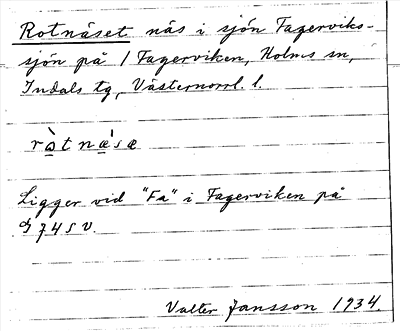 Rotnäset näs i sjön Fagerviks-
sjön på 1 Fagerviken, Holms sn,
Indals tg, Västernorrl. l.
ròtnæ'sæ
Ligger vid "Fa" i Fagerviken på
G 74 SV.
Valter Jansson 1934.